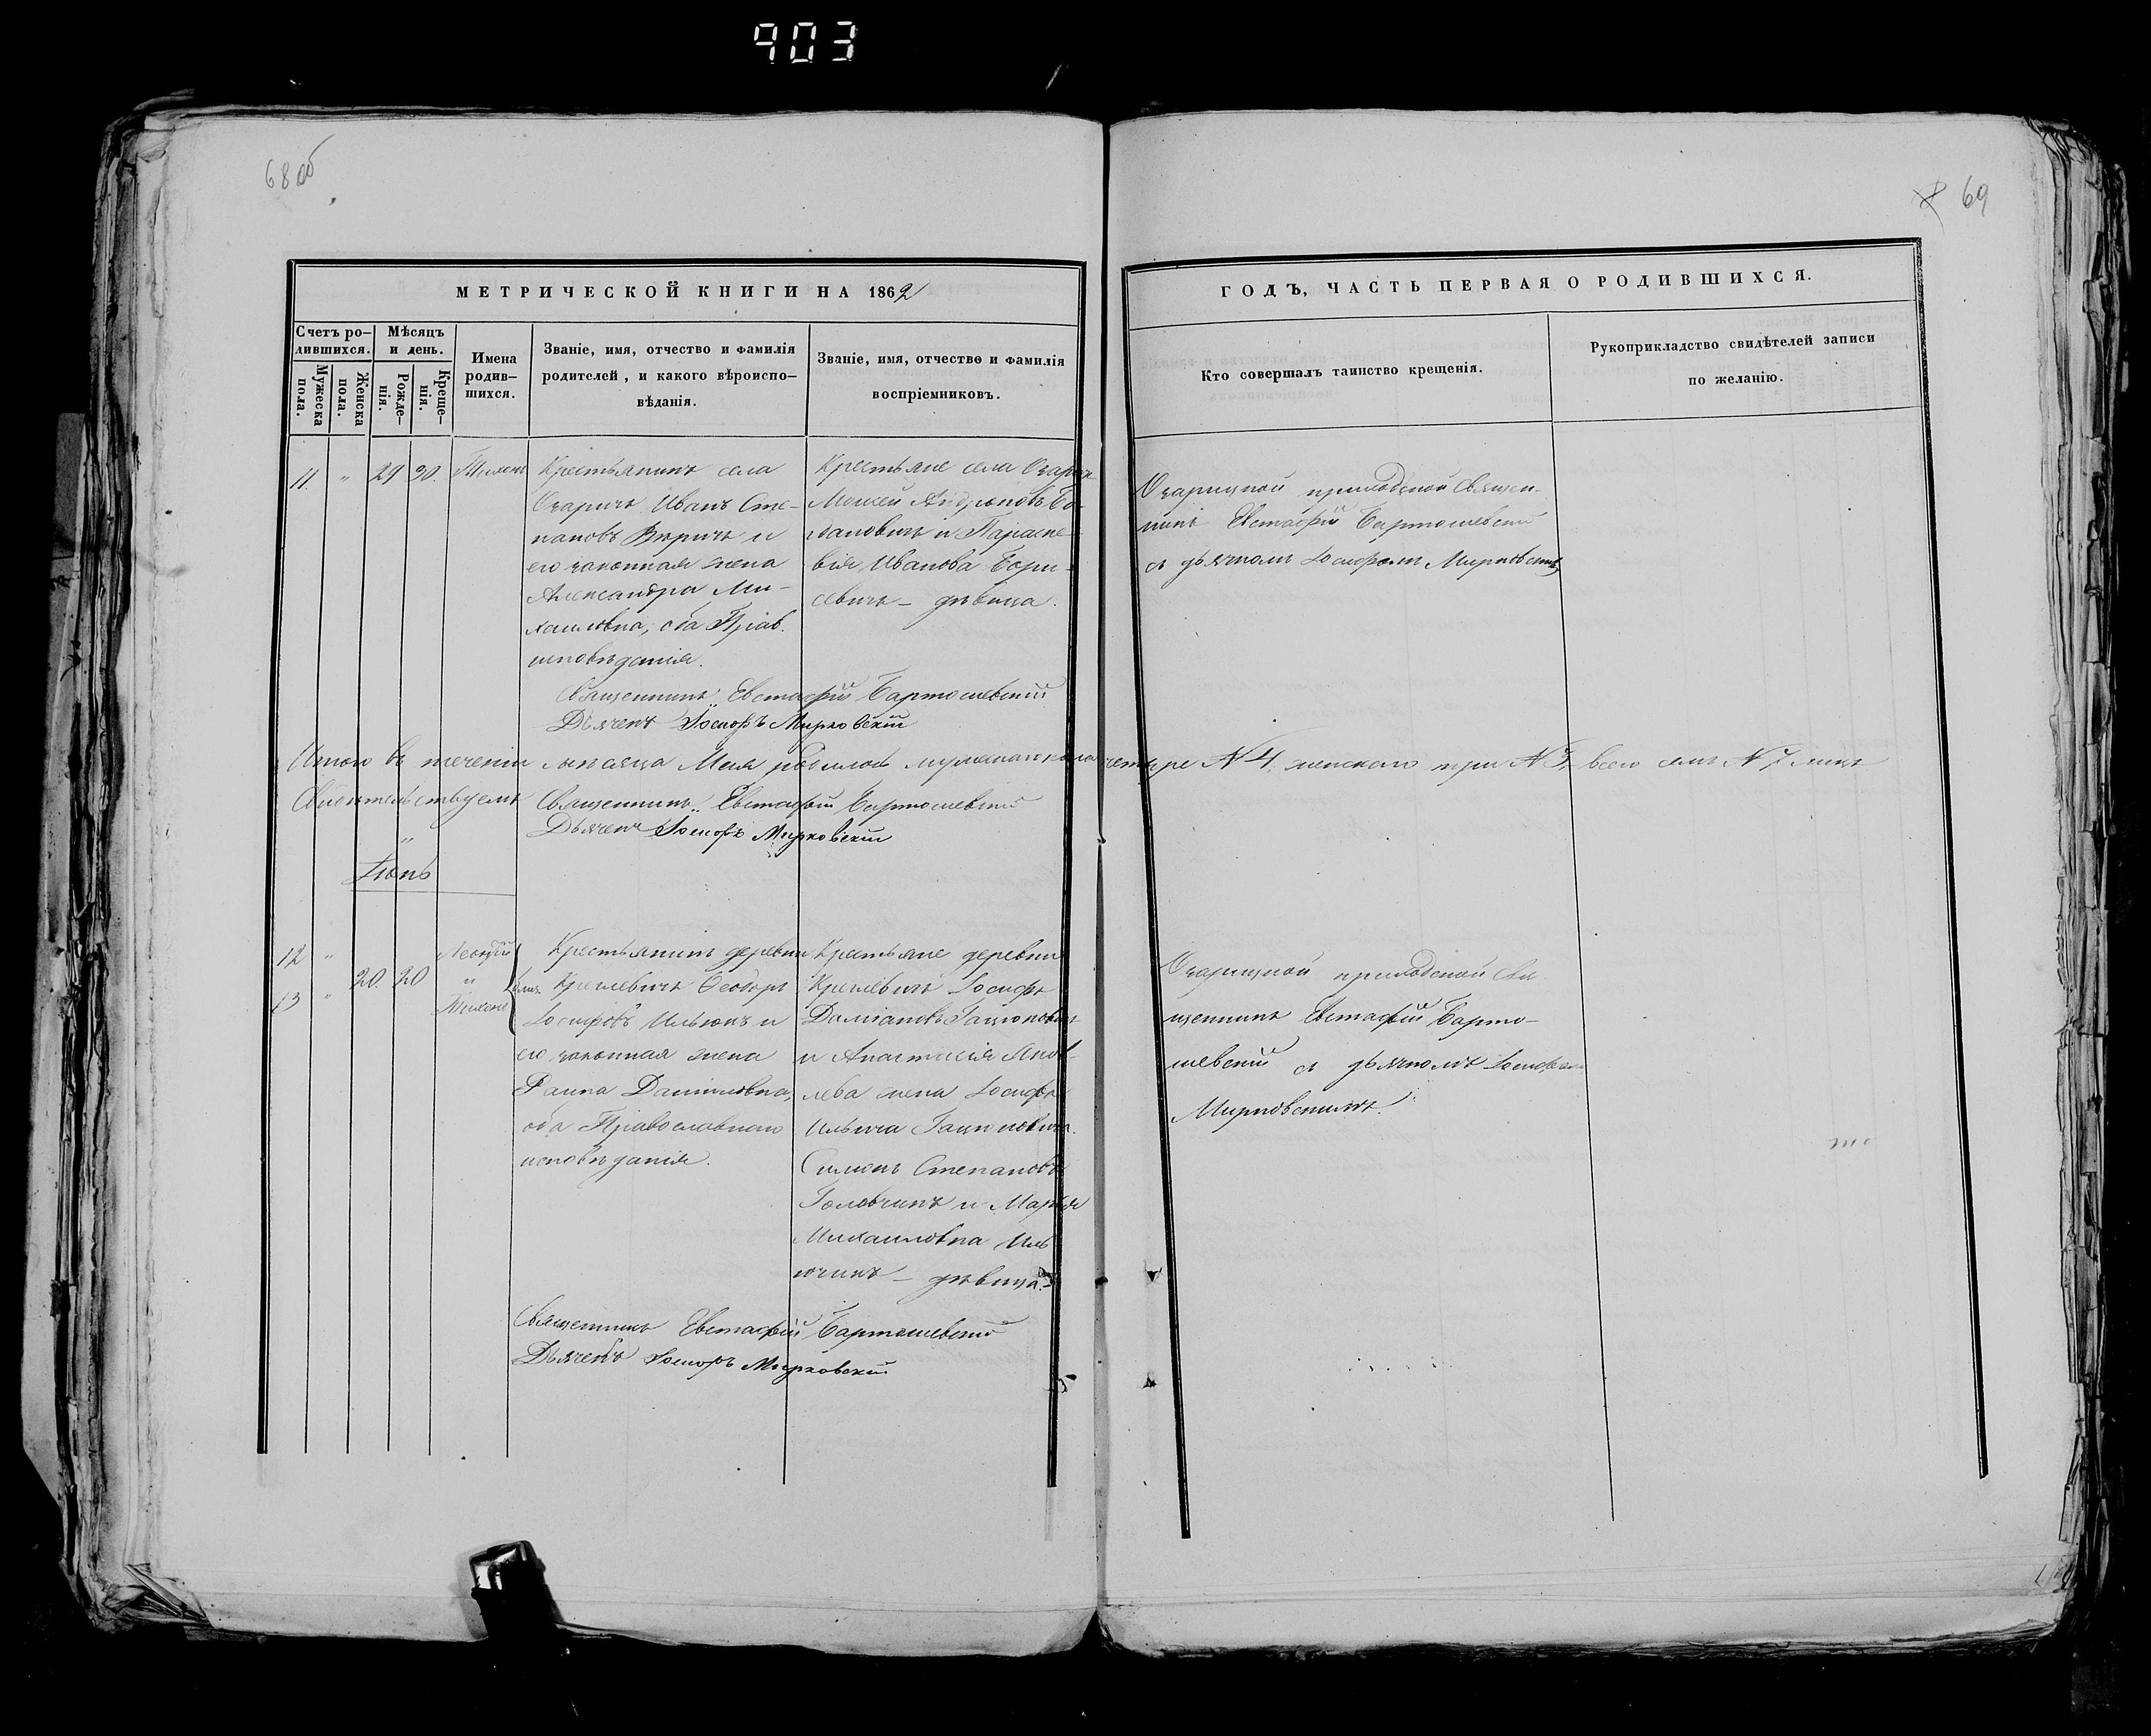 903
68 об
69
МЕТРИЧЕСКОЙ КНИГИ НА 1862
ГОДЪ, ЧАСТЬ ПЕРВАЯ О РОДИВШИХСЯ.
Счетъ ро-
дившихся.
Мужеска
пола.
Женска
пола.
Мѣсяцъ
и день.
Рожде-
нія.
Креще-
нія.
Имена
родив-
шихся.
Званіе, имя, отчество и фамилія
родителей, и какого вѣроиспо-
вѣданія.
Званіе, имя, отчество и фамилія
воспріемниковъ.
Кто совершалъ таинство крещенія.
Рукоприкладство свидѣтелей записи
по желанію.
11. " 29 30. Тихонъ
Крестьянинъ села
Озаричъ Иванъ Сте-
пановъ и
его законная жена
Александра Ми-
хаиловна, оба Прав.
исповѣданія.
Крестьяне села Озаричъ
Моисей Бо-
гдановичъ и Параске-
вія Иванова Бори-
севичъ - дѣвица.
Озарицкой приходской Священ-
никъ Евстафій Бартошевскій
съ дьячкомъ Іосифомъ Мирковскимъ
Священникъ Евстафій Бартошевскій
Дьячекъ Іосифъ Мирковскій
Итого въ теченіи мѣсяца Мая родилось мужескаго пола четыре N 4, женскаго три N 3, всего семь N 7 лицъ
Свидѣтельствуемъ Священникъ Евстафій Бартошевскій
Дьячекъ Іосифъ Мирковскій
Іюнь
12 " Леонтій
20. 20 "
13 " Тихонъ
близ.
Крестьянинъ деревни
Крушевичъ Ѳеодоръ
Іосифовъ Ильючъ и
его законная жена
Фаина Даниловна,
оба Православнаго
исповѣданія.
Крестьяне деревни
Крушевичъ Іосифъ
Даміановъ
и Анастасія Яков-
лева жена Іосифа
Ильича
Симонъ Степановъ
Головчикъ и Марья
Михаиловна Иль
ючикъ - дѣвица.
Озарицкой приходской Свя-
щенникъ Евстафій Барто-
шевскій съ дьячкомъ Іосифомъ
Мирковскимъ.
Священникъ Евстафій Бартошевскій
Дьячекъ Іосифъ Мирковскій